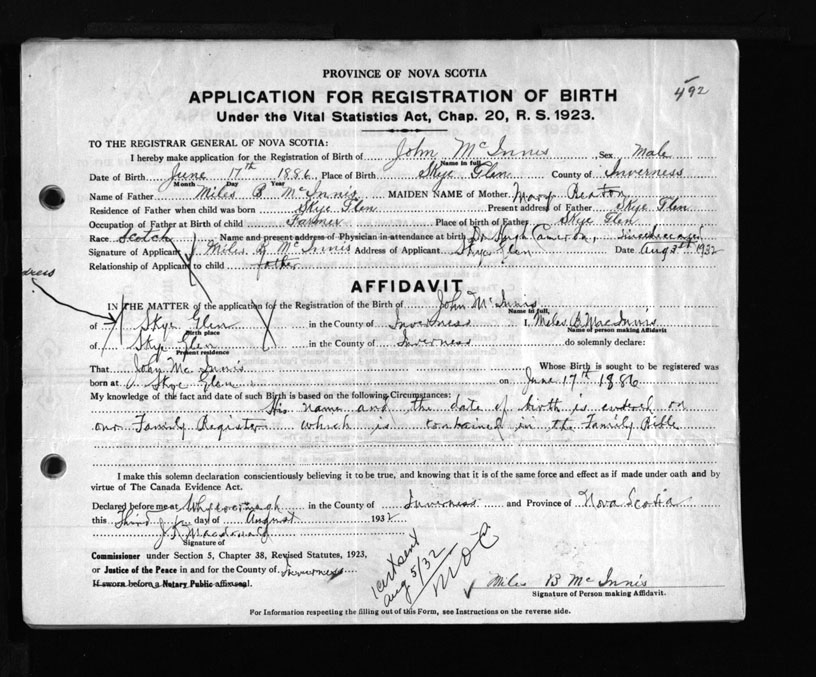 PROVINCE OF NOVA SCOTIA
APPLICATION FOR REGISTRATION OF BIRTH
492
Under the Vital Statistics Act, Chap. 20, R. S. 1923.
TO THE REGISTRAR GENERAL OF NOVA SCOTIA:
I hereby make application for the Registration of Birth of John McInnis Sex Male
Name in full
Date of Birth June 17th 1886 Place of Birth Skye Glen County of Inverness
Month Day Year
Name of Father Miles B McInnis MAIDEN NAME of Mother Mary Beaton
Residence of Father when child was born Skye Glen Present address of Father Skye Glen
Occupation of Father at Birth of child Farmer Place of birth of Father Skye Glen
Race Scotch Name and present address of Physician in attendance at birth Dr Hugh Cameron,
Signature of Applicant Miles B McInnis Address of Applicant Skye Glen Date Aug 3rd 1932
Relationship of Applicant to child father
AFFIDAVIT
IN THE MATTER of the application for the Registration of the Birth of John McInnis
Name in full,
of Skye Glen in the County of Inverness I, Miles B MacInnis
Birth place Name of person making Affidavit
of Skye Glen in the County of Inverness do solemnly declare:
Present residence
That John McInnis Whose Birth is sought to be registered was
born at Skye Glen on June 17th 1886
My knowledge of the fact and date of such Birth is based on the following Circumstances:
His name and the date of birth is entered on
our Family Register which is contained in the Family Bible
I make this solemn declaration conscientiously believing it to be true, and knowing that it is of the same force and effect as if made under oath and by
virtue of The Canada Evidence Act.
Declared before me at Whycocomagh in the County of Inverness and Province of Nova Scotia
this Third day of August 1932
J. K. Macdonald
Signature of
Commissioner under Section 5, Chapter 38, Revised Statutes, 1923,
or Justice of the Peace in and for the County of Inverness
If sworn before a Notary Public affix seal.
Aug 5/32
Miles B McInnis
Signature of Person making Affidavit.
For Information respecting the filling out of this Form, see Instructions on the reverse side.